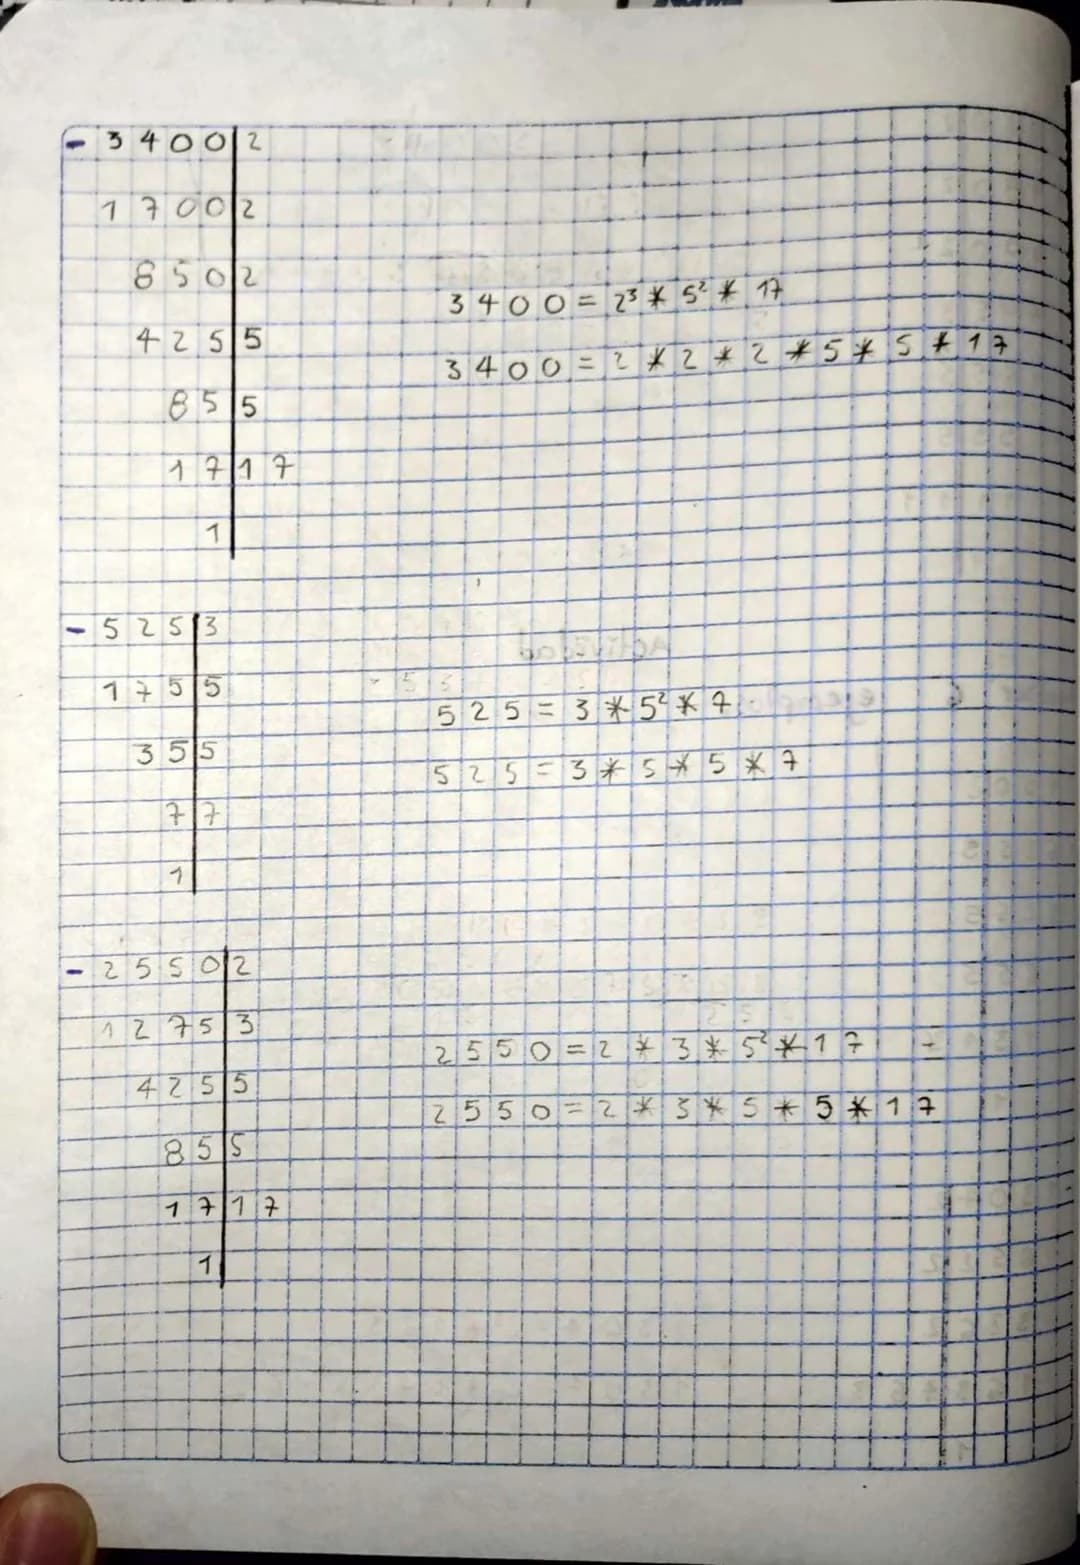 - 3400|2
1700|2
850|2
425|5
85|5
17|17
1|
3400 = 2³ * 5² * 17
3400 = 2 * 2 * 2 * 5 * 5 * 17
- 525|3
175|5
35|5
7|7
1|
525 = 3 * 5² * 7
525 = 3 * 5 * 5 * 7
- 2550|2
1275|3
425|5
85|5
17|17
1|
2550 = 2 * 3 * 5² * 17
2550 = 2 * 3 * 5 * 5 * 17